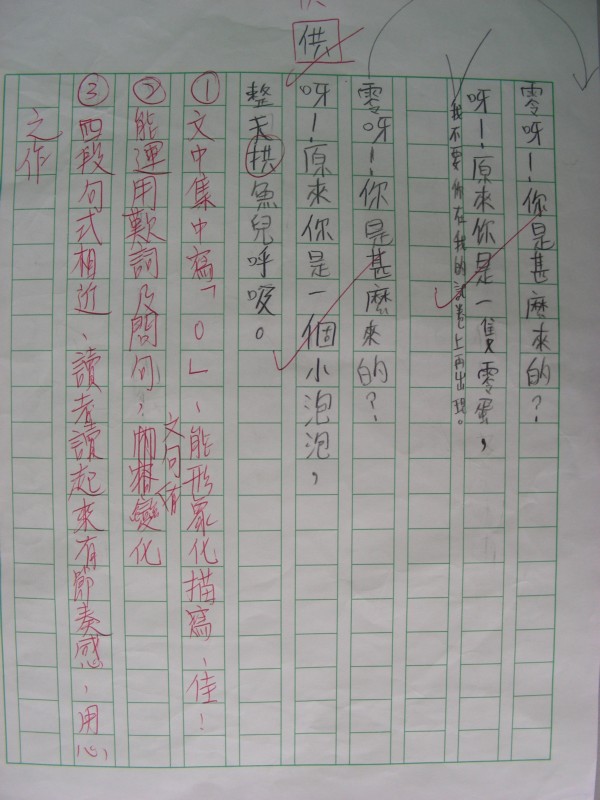 供
零呀!你是甚麼來的?
呀!原來你是一隻零蛋,
我不要你在我的試卷上再出現。
零呀!你是甚麼來的?
呀!原來你是一個小泡泡,
整天拱魚兒呼吸。
①文中集中寫「0」、能形象化描寫、佳!
②能運用歎詞及問句,文句有變化
③四段句式相近、讀者讀起來有節奏感、用心
之作